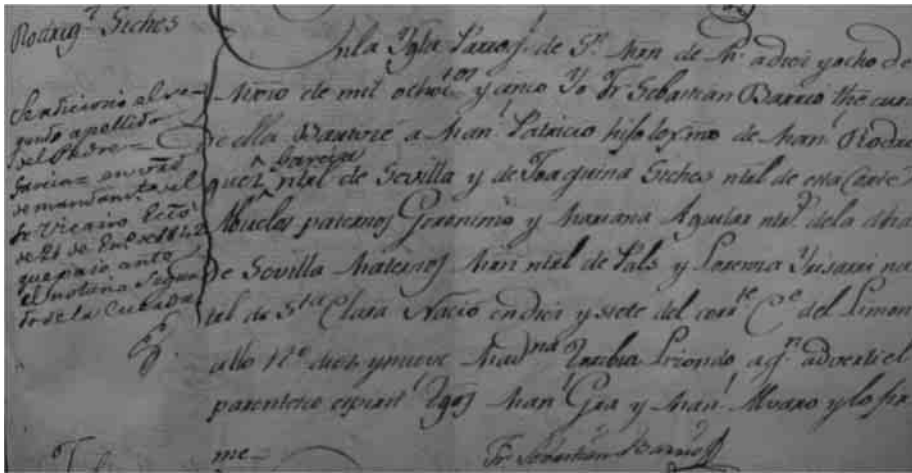 Rodrig.z Siches
Se adicionó el se-
gundo apellido
del Padre=
Garcia= en virtd
de mandamto del
Sr Vicario Ecco
de 21 de En.o de 1842
que pasó ante
el notario
de la Cubeda
En la Ygla Parroql de Sn Mrn de Md a diez y ocho de
Marzo de mil ochocios y cinco Yo Fr Sebastian Barrio the cura
de ella Bauticé a Manl Patricio hijo legmo de Manl Rodri
guez ^Garcia ntal de Sevilla y de Joaquina Siches ntal de esta Corte=
Abuelos paternos Geronimo y Mariana Aguilar ntals de la dha
de Sevilla Maternos Mrn ntal de Pals y Lorenza Yrisarri na
tal de Sta Clara Nació en diez y siete del corrte Ce del Limon
alto no diez y nueve Madna Toribia Liondo a qn advertí el
parentesco espiritl Tgos Manl Gra y Manl Alvaro y lo fir
me=
Fr Sebastian Barrio